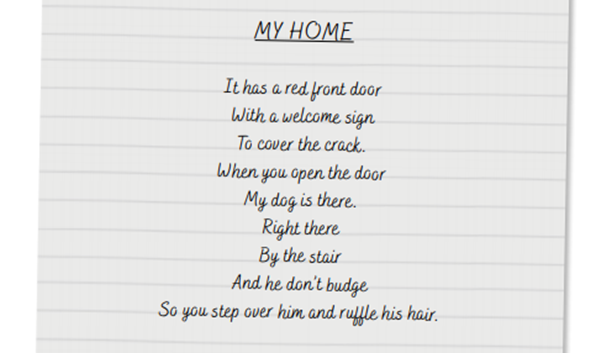 MY HOME
It has a red front door
With a welcome sign
To cover the crack.
When you open the door
My dog is there.
Right there
By the stair
And he don't budge
So you step over him and ruffle his hair.